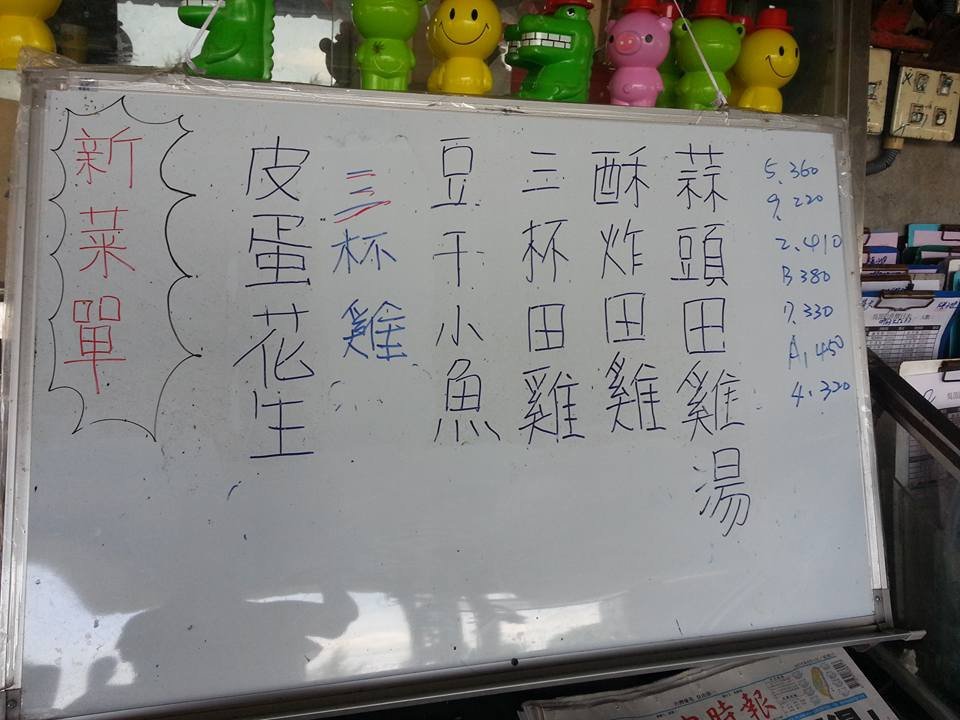 新菜單
皮蛋花生
三杯雞
豆干小魚
三杯田雞
酥炸田雞
蒜頭田雞湯
5.360
9.220
2.410
B 380
7.330
A.450
4.320
時報